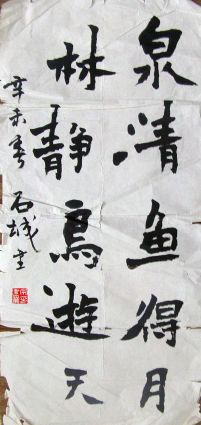 泉清鱼得月
林静鳥遊天
辛未春 石城